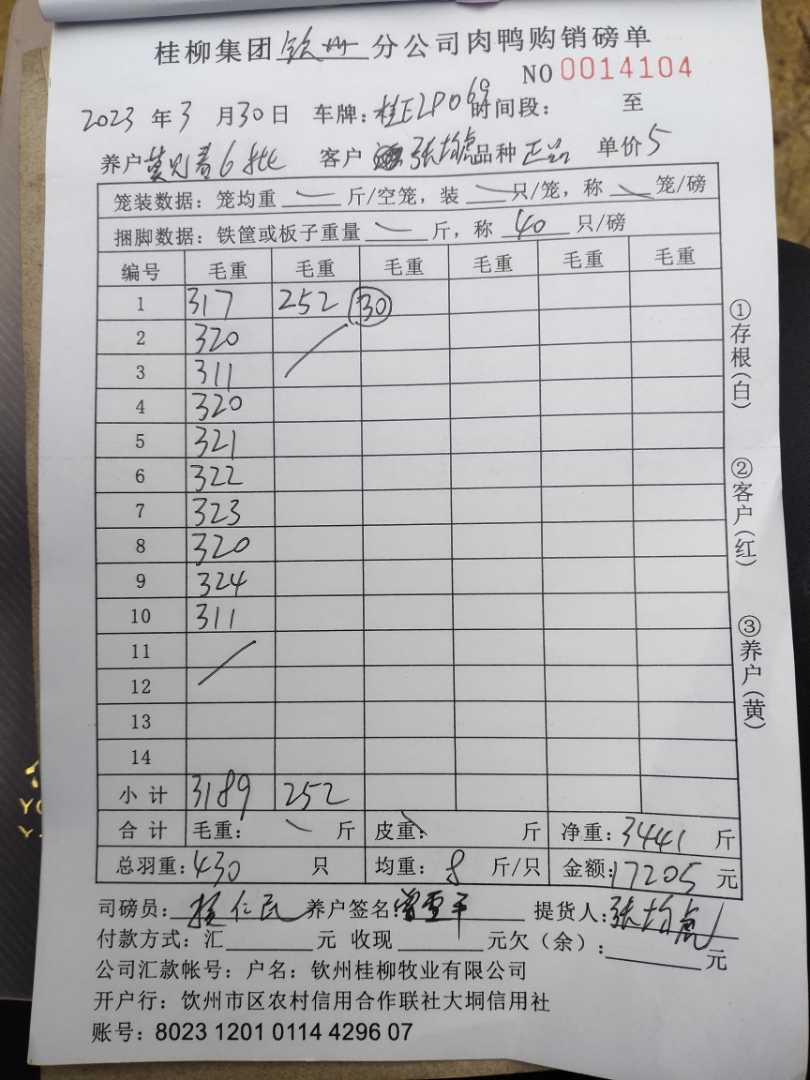 桂柳集团钦州分公司肉鸭购销磅单
NO 0014104
2023年3月30日 车牌：桂E2P069 时间段： 至
养户 6批 客户 张均虎 品种 正品 单价5
笼装数据：笼均重 斤/空笼，装 只/笼，称 笼/磅
捆脚数据：铁筐或板子重量 斤，称 40 只/磅
编号 毛重 毛重 毛重 毛重 毛重 毛重
1 317 252 30
2 320
3 311
4 320
5 321
6 322
7 323
8 320
9 324
10 311
11
12
13
14
小计 3189 252
合计 毛重： 斤 皮重： 斤 净重：3441 斤
总羽重：430 只 均重：8 斤/只 金额：17205 元
司磅员： 仁民 养户签名： 提货人：张均虎
付款方式：汇 元 收现 元欠（余）： 元
公司汇款帐号：户名：钦州桂柳牧业有限公司
开户行：钦州市区农村信用合作联社大垌信用社
账号：8023 1201 0114 4296 07
①存根（白）
②客户（红）
③养户（黄）